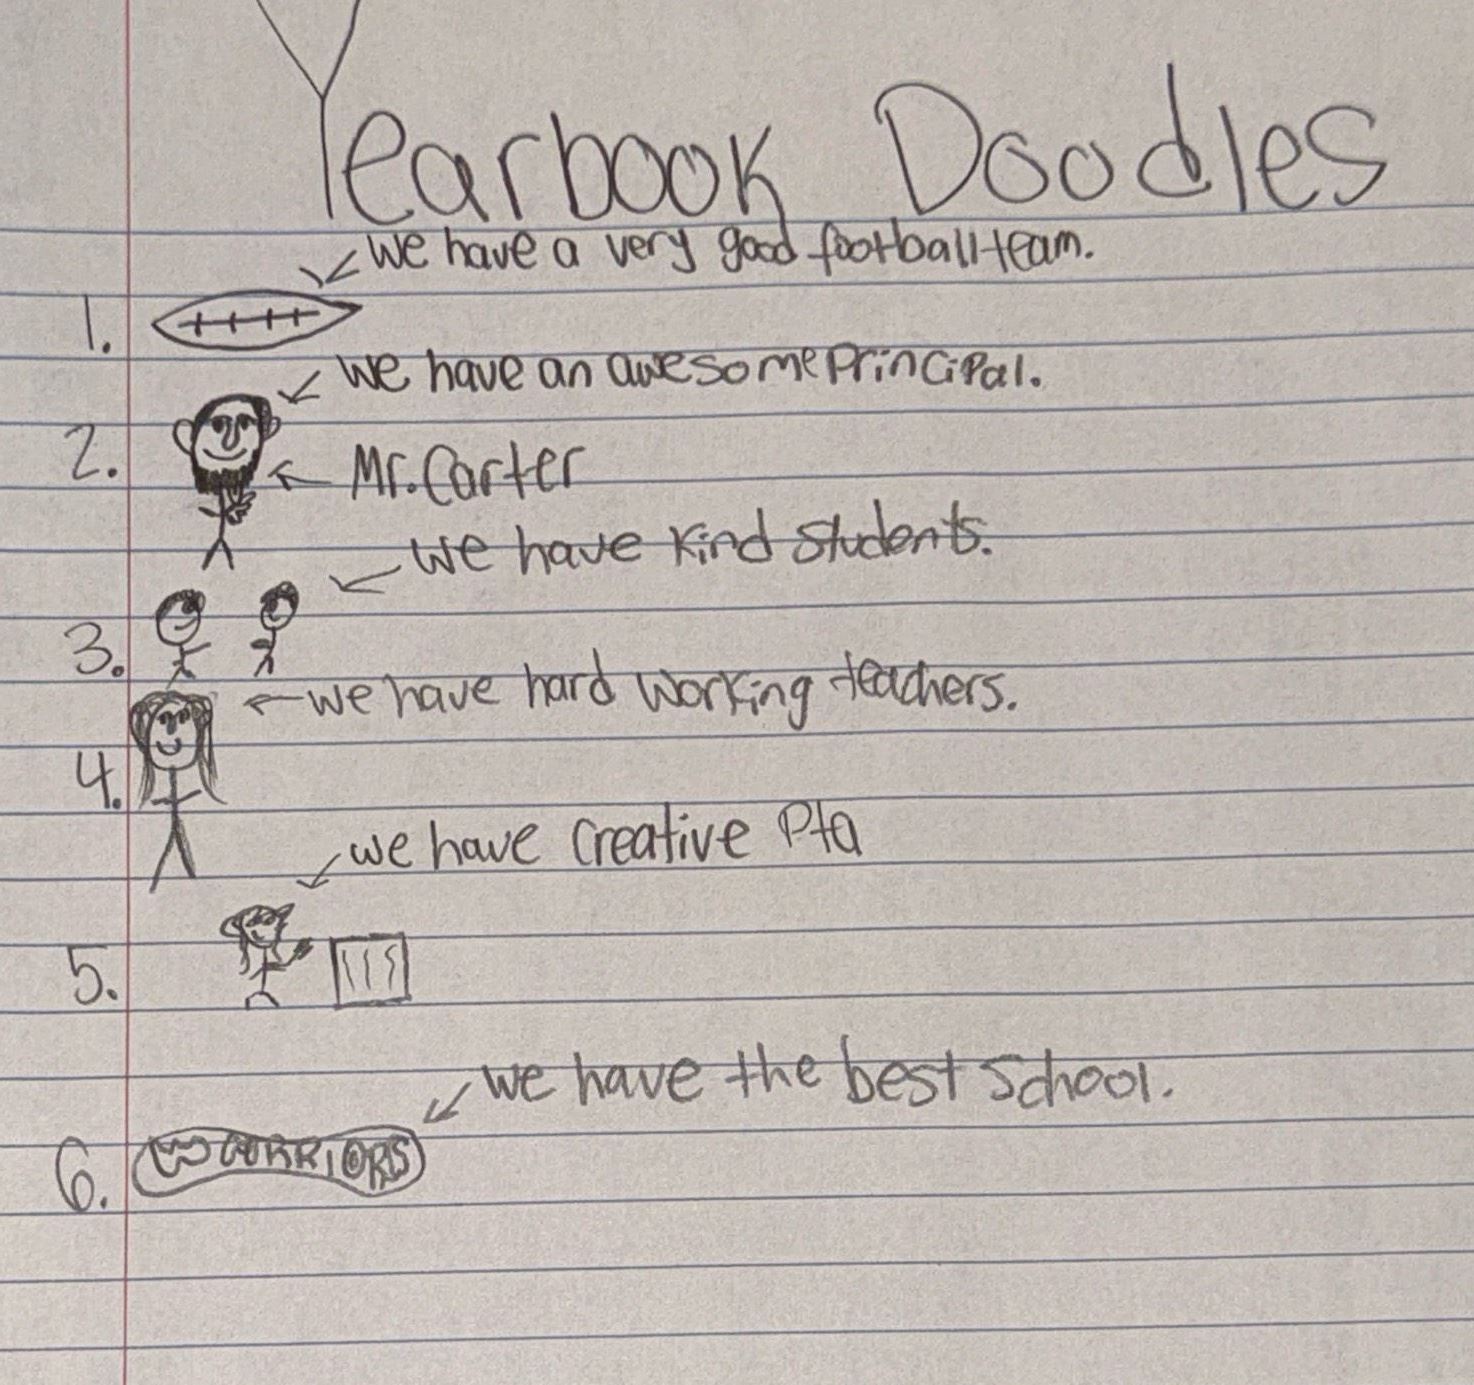 Yearbook Doodles
we have a very good football team.
1.
we have an awesome Principal.
2.
Mr. Carter
we have kind students.
3.
we have hard working teachers.
4.
we have creative Pta
5.
we have the best school.
6. WARRIORS